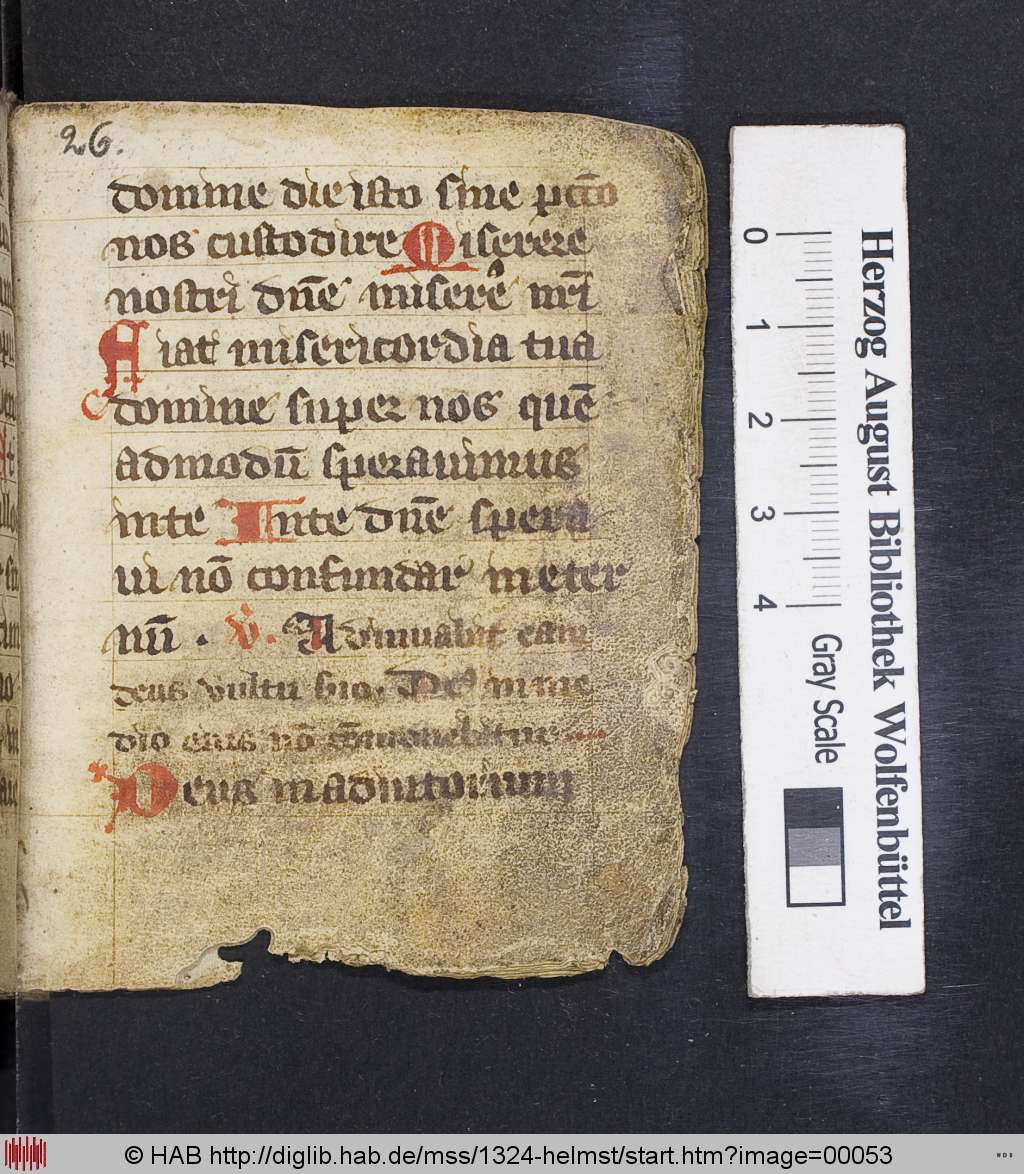 26.
domine die isto sine pctō
nos custodire Miserere
nostri dn̄e miserē nr̄i
Fiat misericordia tua
domine super nos quē
admodū sperauimus
inte Inte dn̄e spera
ui nō confundar in eter
nū . v̄. Adiuuabit eam
deus vultu suo. De⁹ in me
dio eius nō cōmouebitur
Deus in adiutorium
0
1
2
3
4
Gray Scale
Herzog August Bibliothek Wolfenbüttel
© HAB http://diglib.hab.de/mss/1324-helmst/start.htm?image=00053